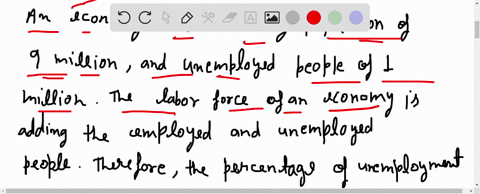 An econ
9 million, and unemployed people of 1
million. The labor force of an economy is
adding the employed and unemployed
people. Therefore, the percentage of unemployment